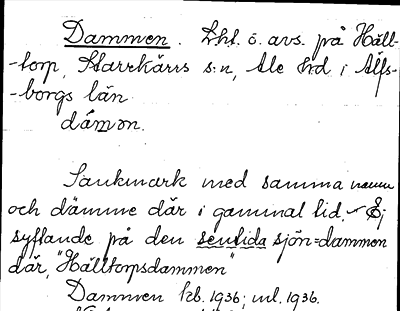 Dammen. Lht. ö. avs. på Häll-
-torp, Starrkärrs s:n, Ale hd i Älfs-
-borgs län.
dámon.
Sankmark med samma namn
och dämme där i gammal tid. Ej
syftande på den sentida sjön=dammen
där, "Hälltorpsdammen"
Dammen kb. 1936; utl. 1936.